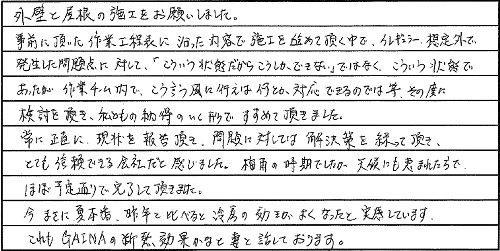 外壁と屋根の施工をお願いしました。
事前に頂いた作業工程表に沿った内容で施工を進めて頂く中で、イレギュラー、想定外で、
発生した問題点に対して、「こういう状態だからこうしか、できない」ではなく、こういう状態で
あったが作業チーム内で、こう言う風に行えば何とか、対応できるのでは等、その度に
検討を頂き、私どもの納得のいく形ですすめて頂きました。
常に正直に、現状を報告頂き、問題に対しては解決策を練って頂き、
とても信頼できる会社だと感じました。梅雨の時期でしたが天候にも恵まれたので、
ほぼ予定通りで完了して頂きました。
今まさに夏本番、昨年と比べると冷房の効きがよくなったと実感しています。
これもGAINAの断熱効果かなと妻と話しております。